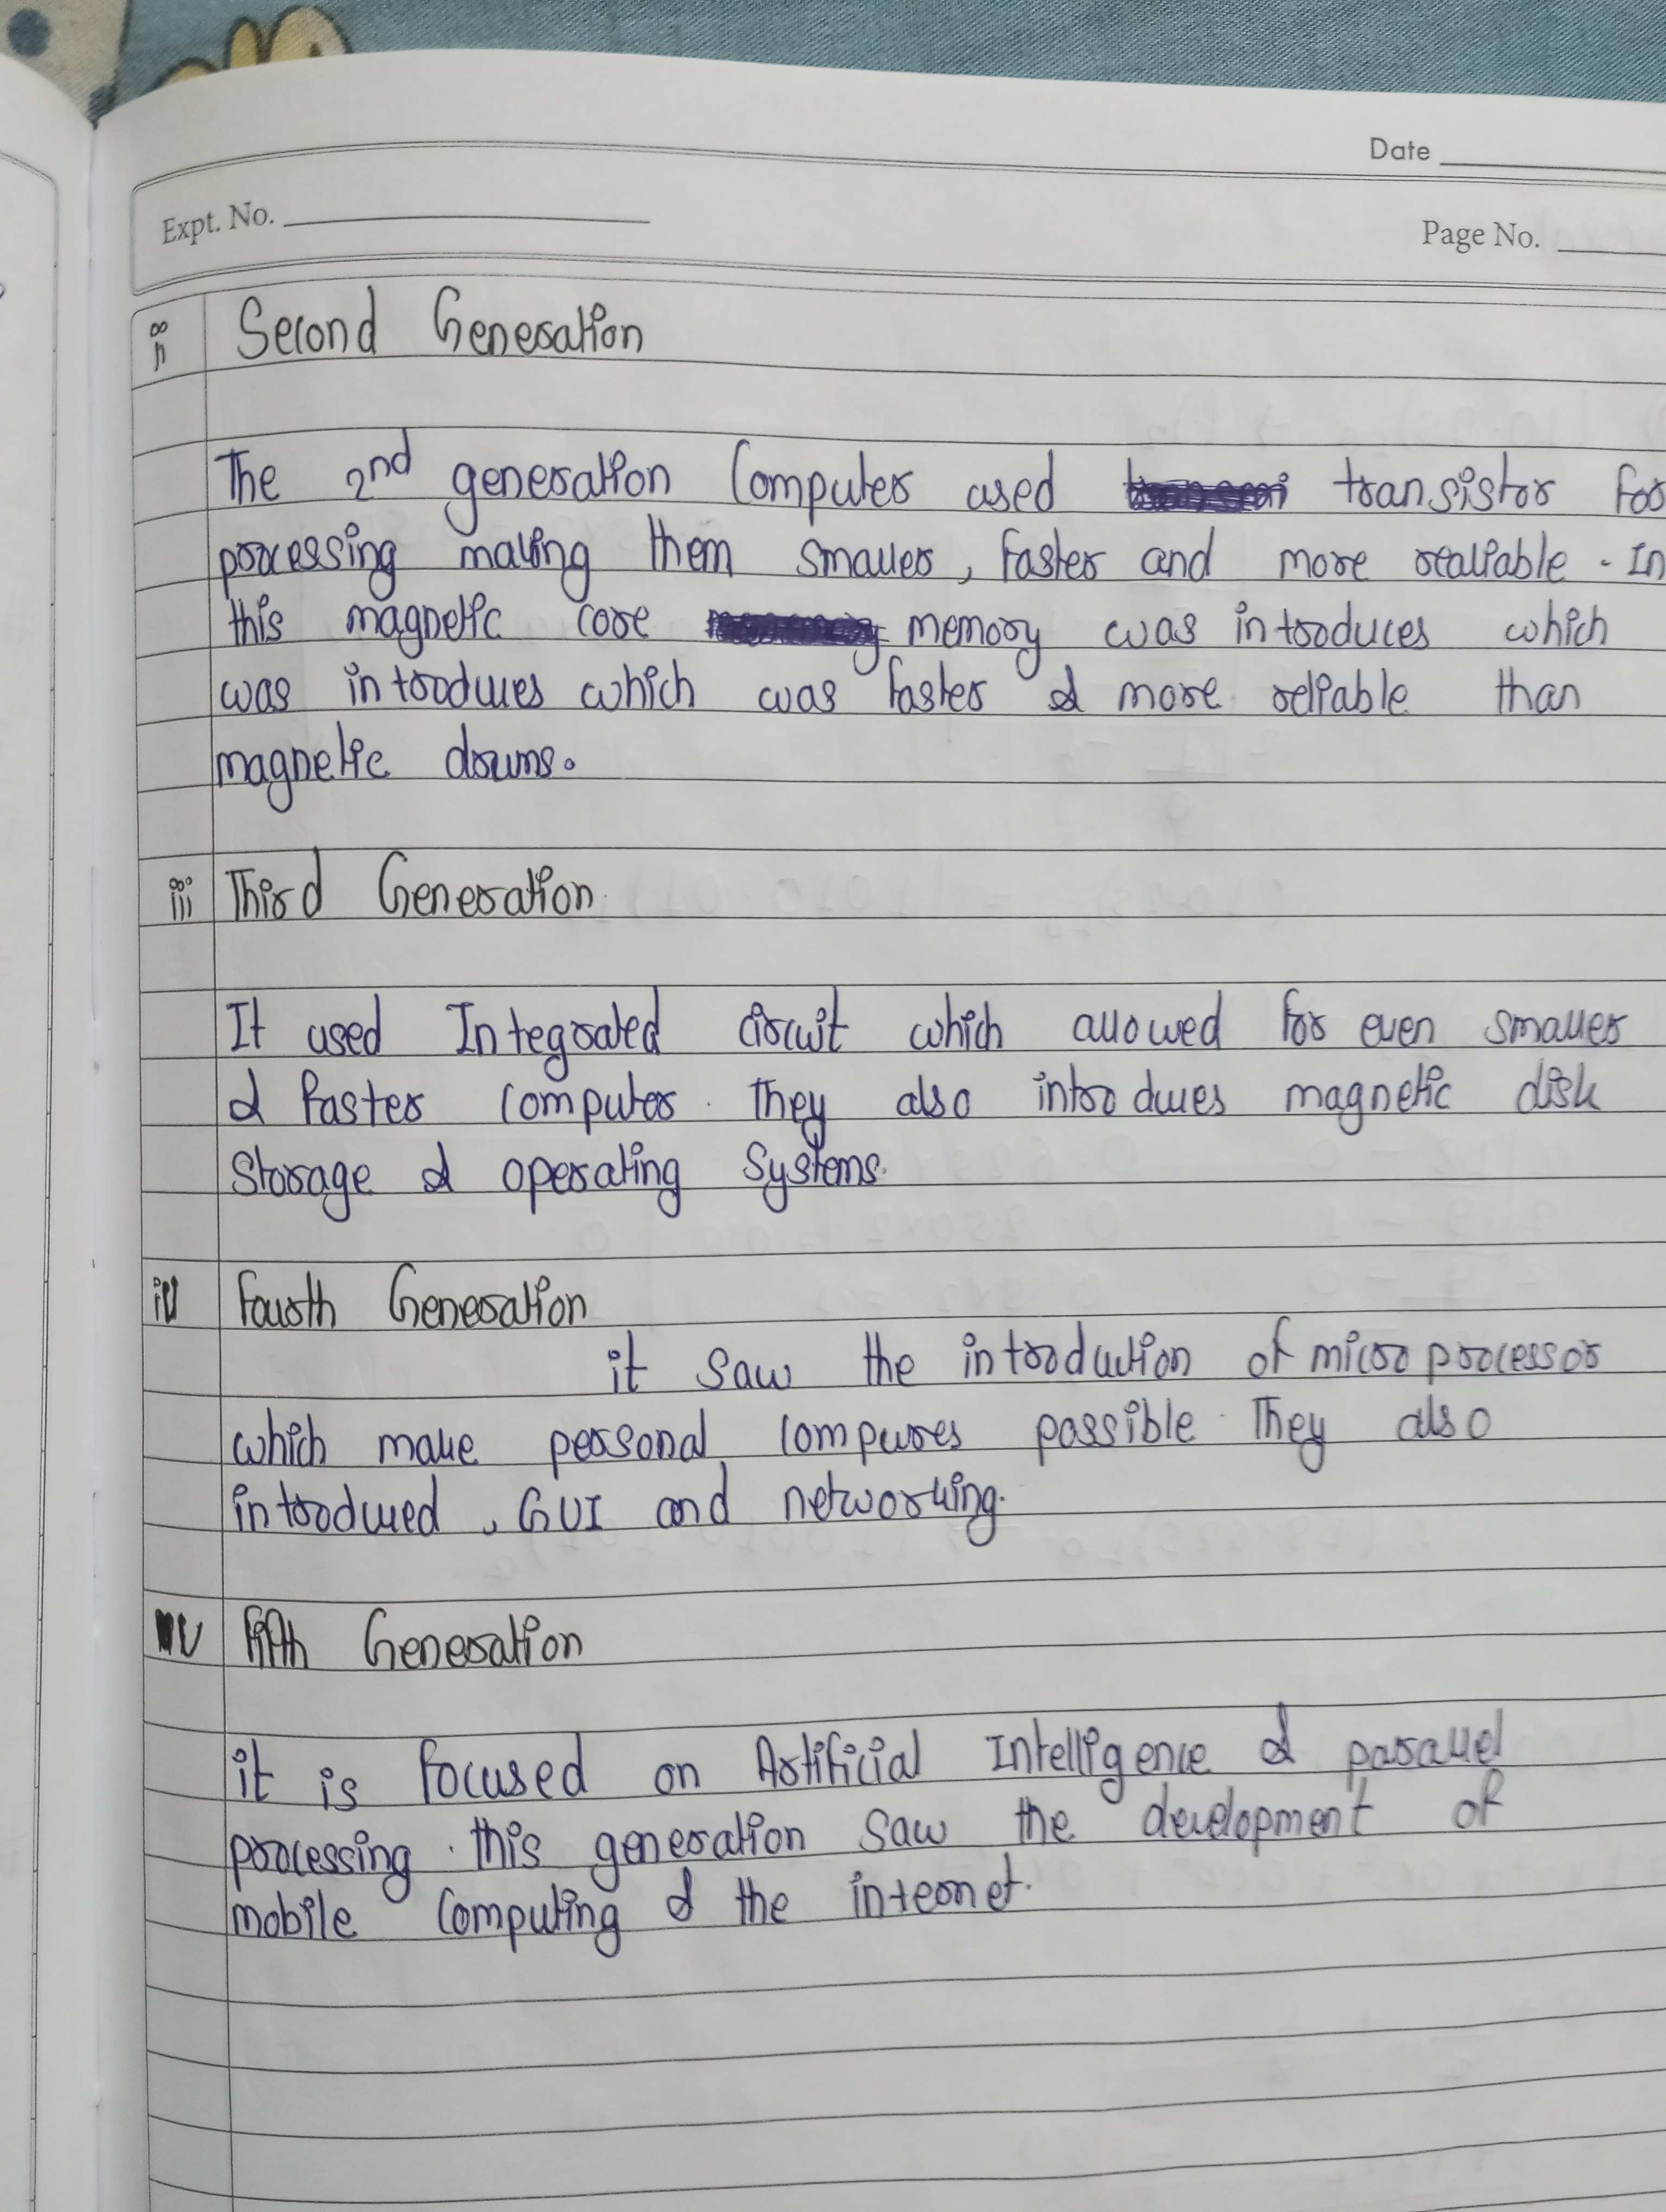 Date
Expt. No.
Page No.
ii Second Generation
The 2nd generation Computer used transistor for
processing making them smaller, faster and more realiable. In
this magnetic core memory was introduces which
was introduces which was faster & more reliable than
magnetic drums.
iii Third Generation
It used Integrated circuit which allowed for even smaller
& faster computer. They also introduces magnetic disk
Storage & operating Systems.
iv Fourth Generation
it saw the introduction of micro processor
which make personal compures possible. They also
introduced, GUI and networking.
v Fifth Generation
it is focused on Artificial Intelligence & parallel
processing. this generation saw the development of
mobile Computing & the internet.